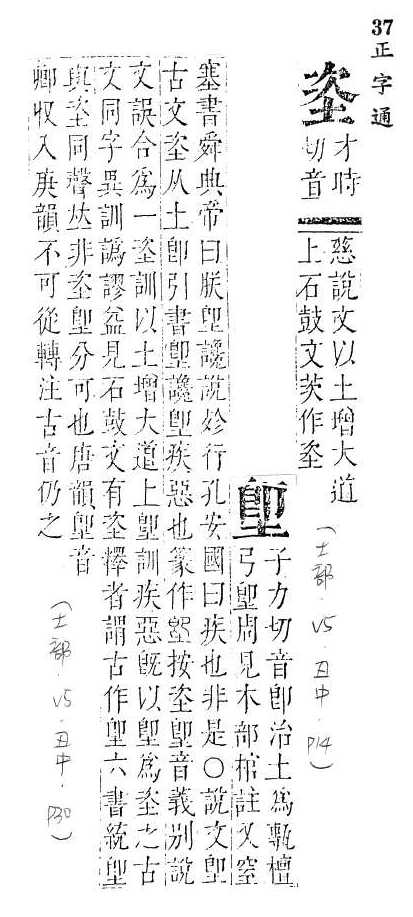 37正字通
垐
才時
切音
慈說文以土增大道
上石鼓文茨作垐
(土部.V5.丑中.P14)
堲
子力切音即治土為甎檀
弓堲周見木部棺註又窒
塞書舜典帝曰朕堲讒說殄行孔安國曰疾也非是○說文堲
古文垐从土即引書堲讒堲疾惡也篆作堲按垐堲音義別說
文誤合為一垐訓以土增大道上堲訓疾惡旣以堲為垐之古
文同字異訓譌謬益見石鼓文有垐釋者謂古作堲六書統堲
與垐同聲夶非垐堲分可也唐韻堲音
卿收入庚韻不可從轉注古音仍之
(土部.V5.丑中.P30)